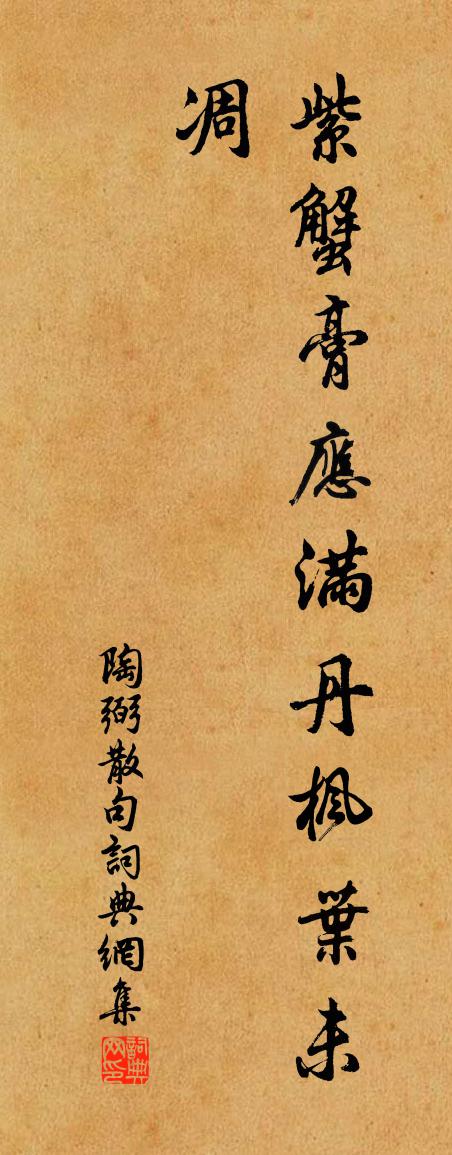 紫蟹膏應滿丹楓葉未
凋
陶弼散句詞典網集
詞典
网印